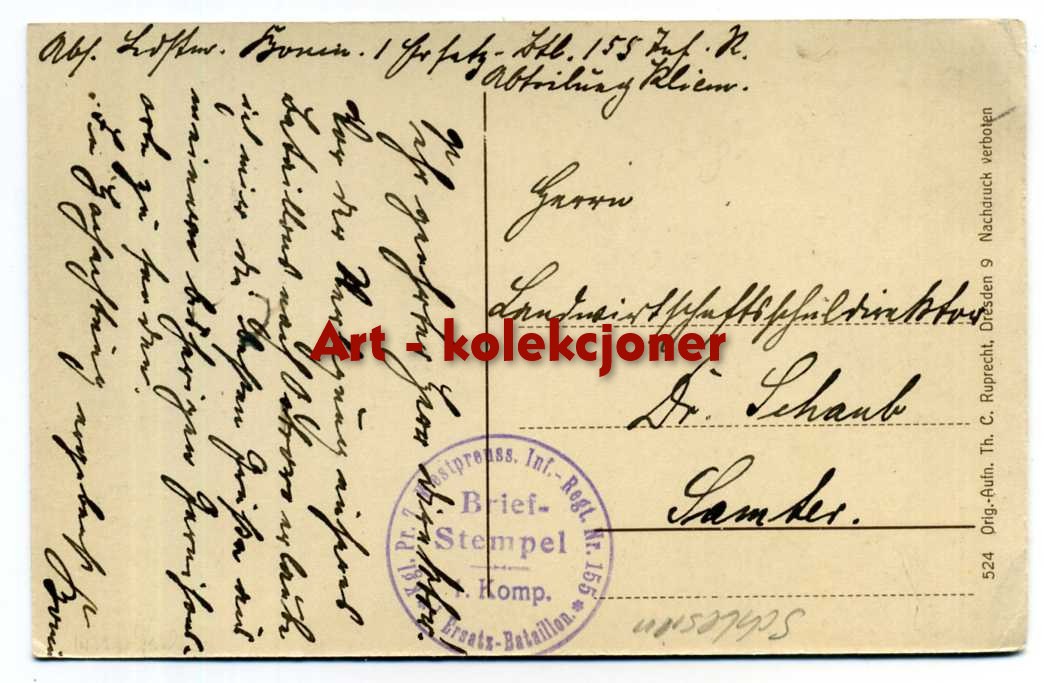 Abs. Ldstm. Bonin. 1 Ersatz-Btl. 155 Inf. R.
Abteilung Kliem.
Sehr geehrter Herr Direktor!
Vor der Verlegung unseres
Bataillons nach Ostrowo erlaube
ich mir die besten Grüße aus
meinem bisherigen Garnisons-
ort zu senden.
Hochachtend ergebenst
Bonin
Herrn
Landwirtschaftsschuldirektor
Dr. Schaub
Samter.
Kgl. Pr. 7. Westpreuss. Inf.-Regt. Nr. 155 * Ersatz-Bataillon.
Brief-
Stempel
1. Komp.
Schlesien
524 Orig.-Aufn. Th. C. Ruprecht, Dresden 9 Nachdruck verboten
Art - kolekcjoner